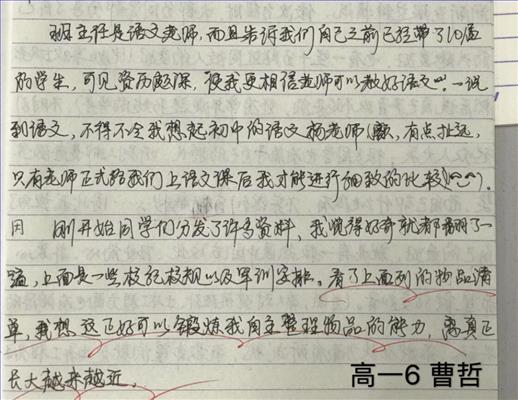 班主任是语文老师，而且告诉我们自己之前已经带了10届
的学生，可见资历颇深，使我更相信老师可以教好语文"。一说
到语文，不得不令我想起初中的语文杨老师(歉，有点扯远，
只有老师正式给我们上语文课后我才能进行细致的比较)(^⌣^)。
刚开始同学们分发了许多资料，我觉得好奇就都翻了一
遍，上面是一些校纪校规以及军训安排。看了上面列的物品清
单，我想，这正好可以锻炼我自主整理物品的能力，离真正
长大越来越近。
高一6 曹哲